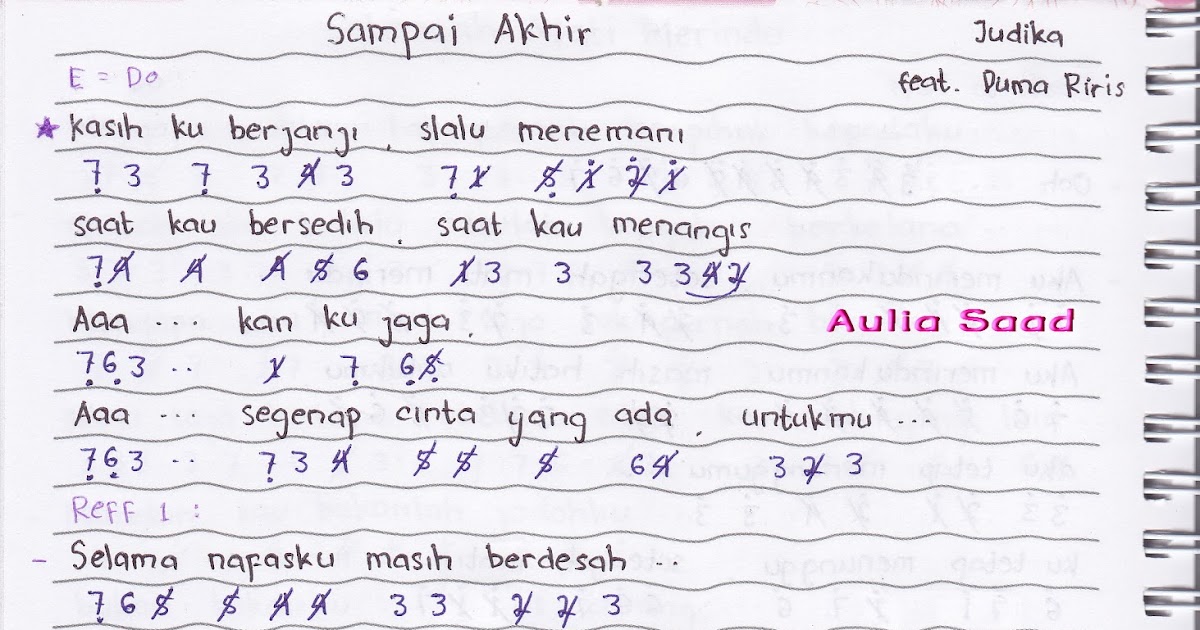 Sampai Akhir
Judika
E = Do
feat. Duma Riris
★ Kasih ku berjanji, slalu menemani
7 3 7 3 4 3 7 1 5 1 2 1
saat kau bersedih, saat kau menangis
7 4 4 4 5 6 1 3 3 3 3 4 2
Aaa ... kan ku jaga,
7 6 3 .. 1 7 6 5
Aulia Saad
Aaa ... segenap cinta yang ada, untukmu ...
7 6 3 .. 7 3 4 5 5 5 6 4 3 2 3
Reff 1 :
- Selama napasku masih berdesah ...
7 6 5 5 4 4 3 3 2 2 3